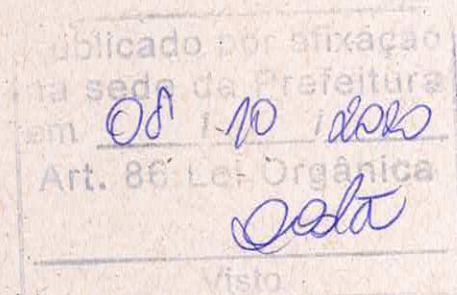 Publicado por afixação
na sede da Prefeitura
em 08 / 10 / 2020
Art. 86 Lei Orgânica
Visto